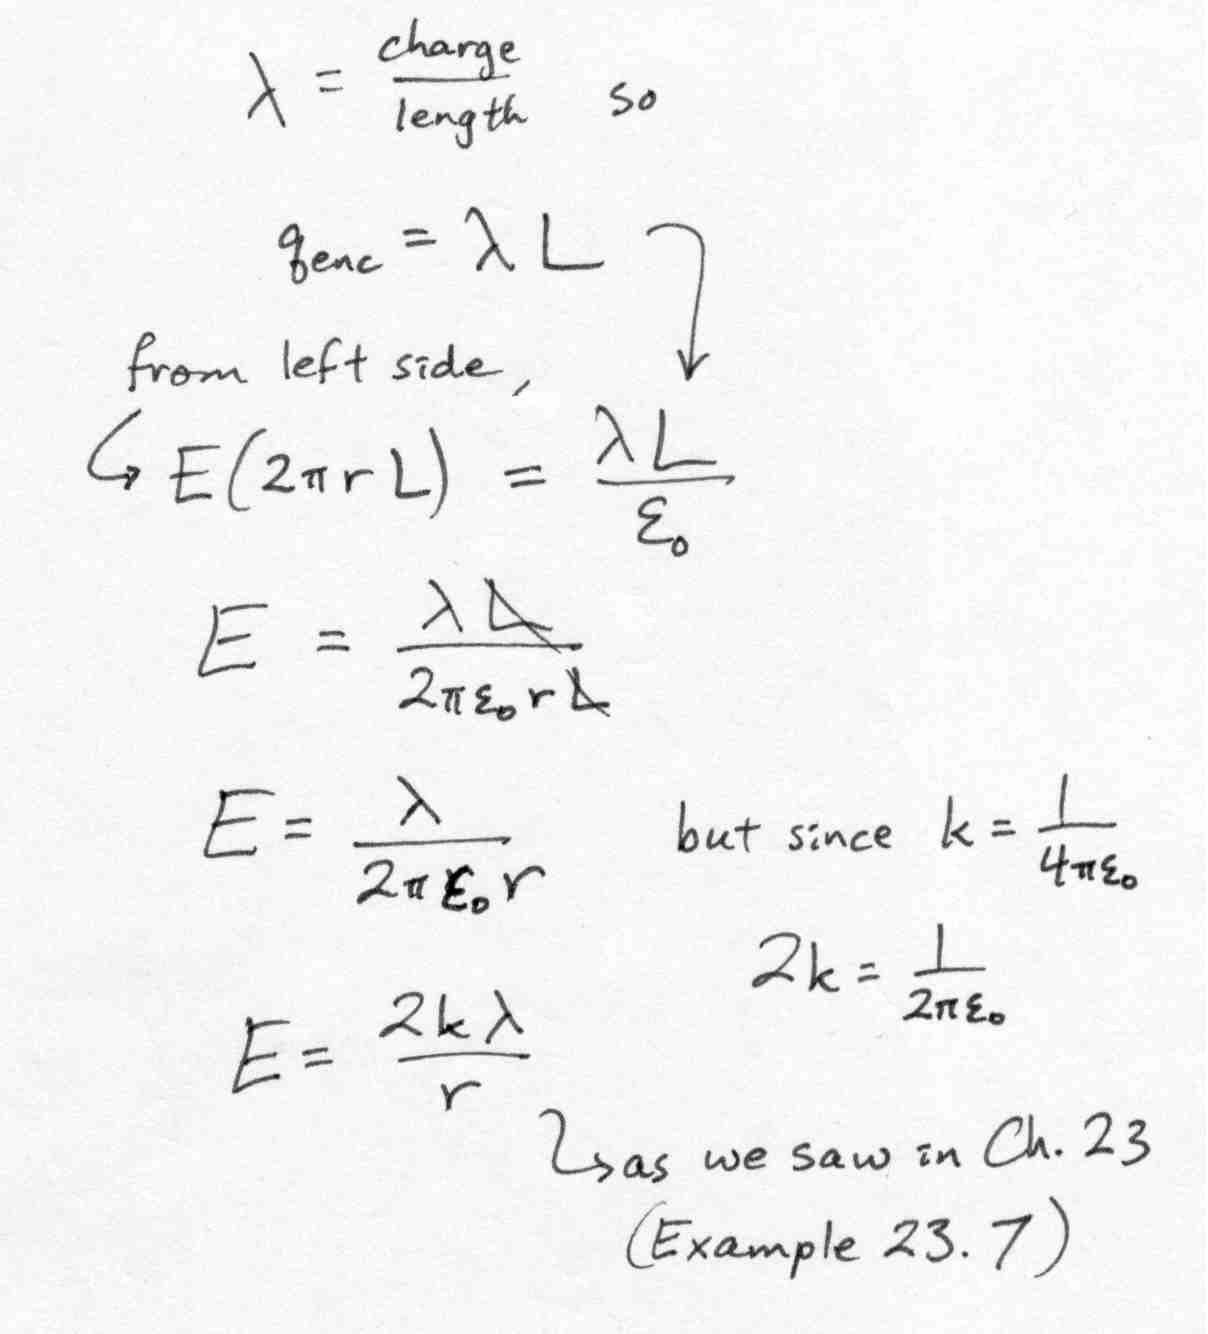 λ = charge/length so
q_enc = λ L
from left side,
E(2πrL) = λL/ε₀
E = λL/2πε₀rL
E = λ/2πε₀r but since k = 1/4πε₀
2k = 1/2πε₀
E = 2kλ/r
as we saw in Ch. 23
(Example 23.7)